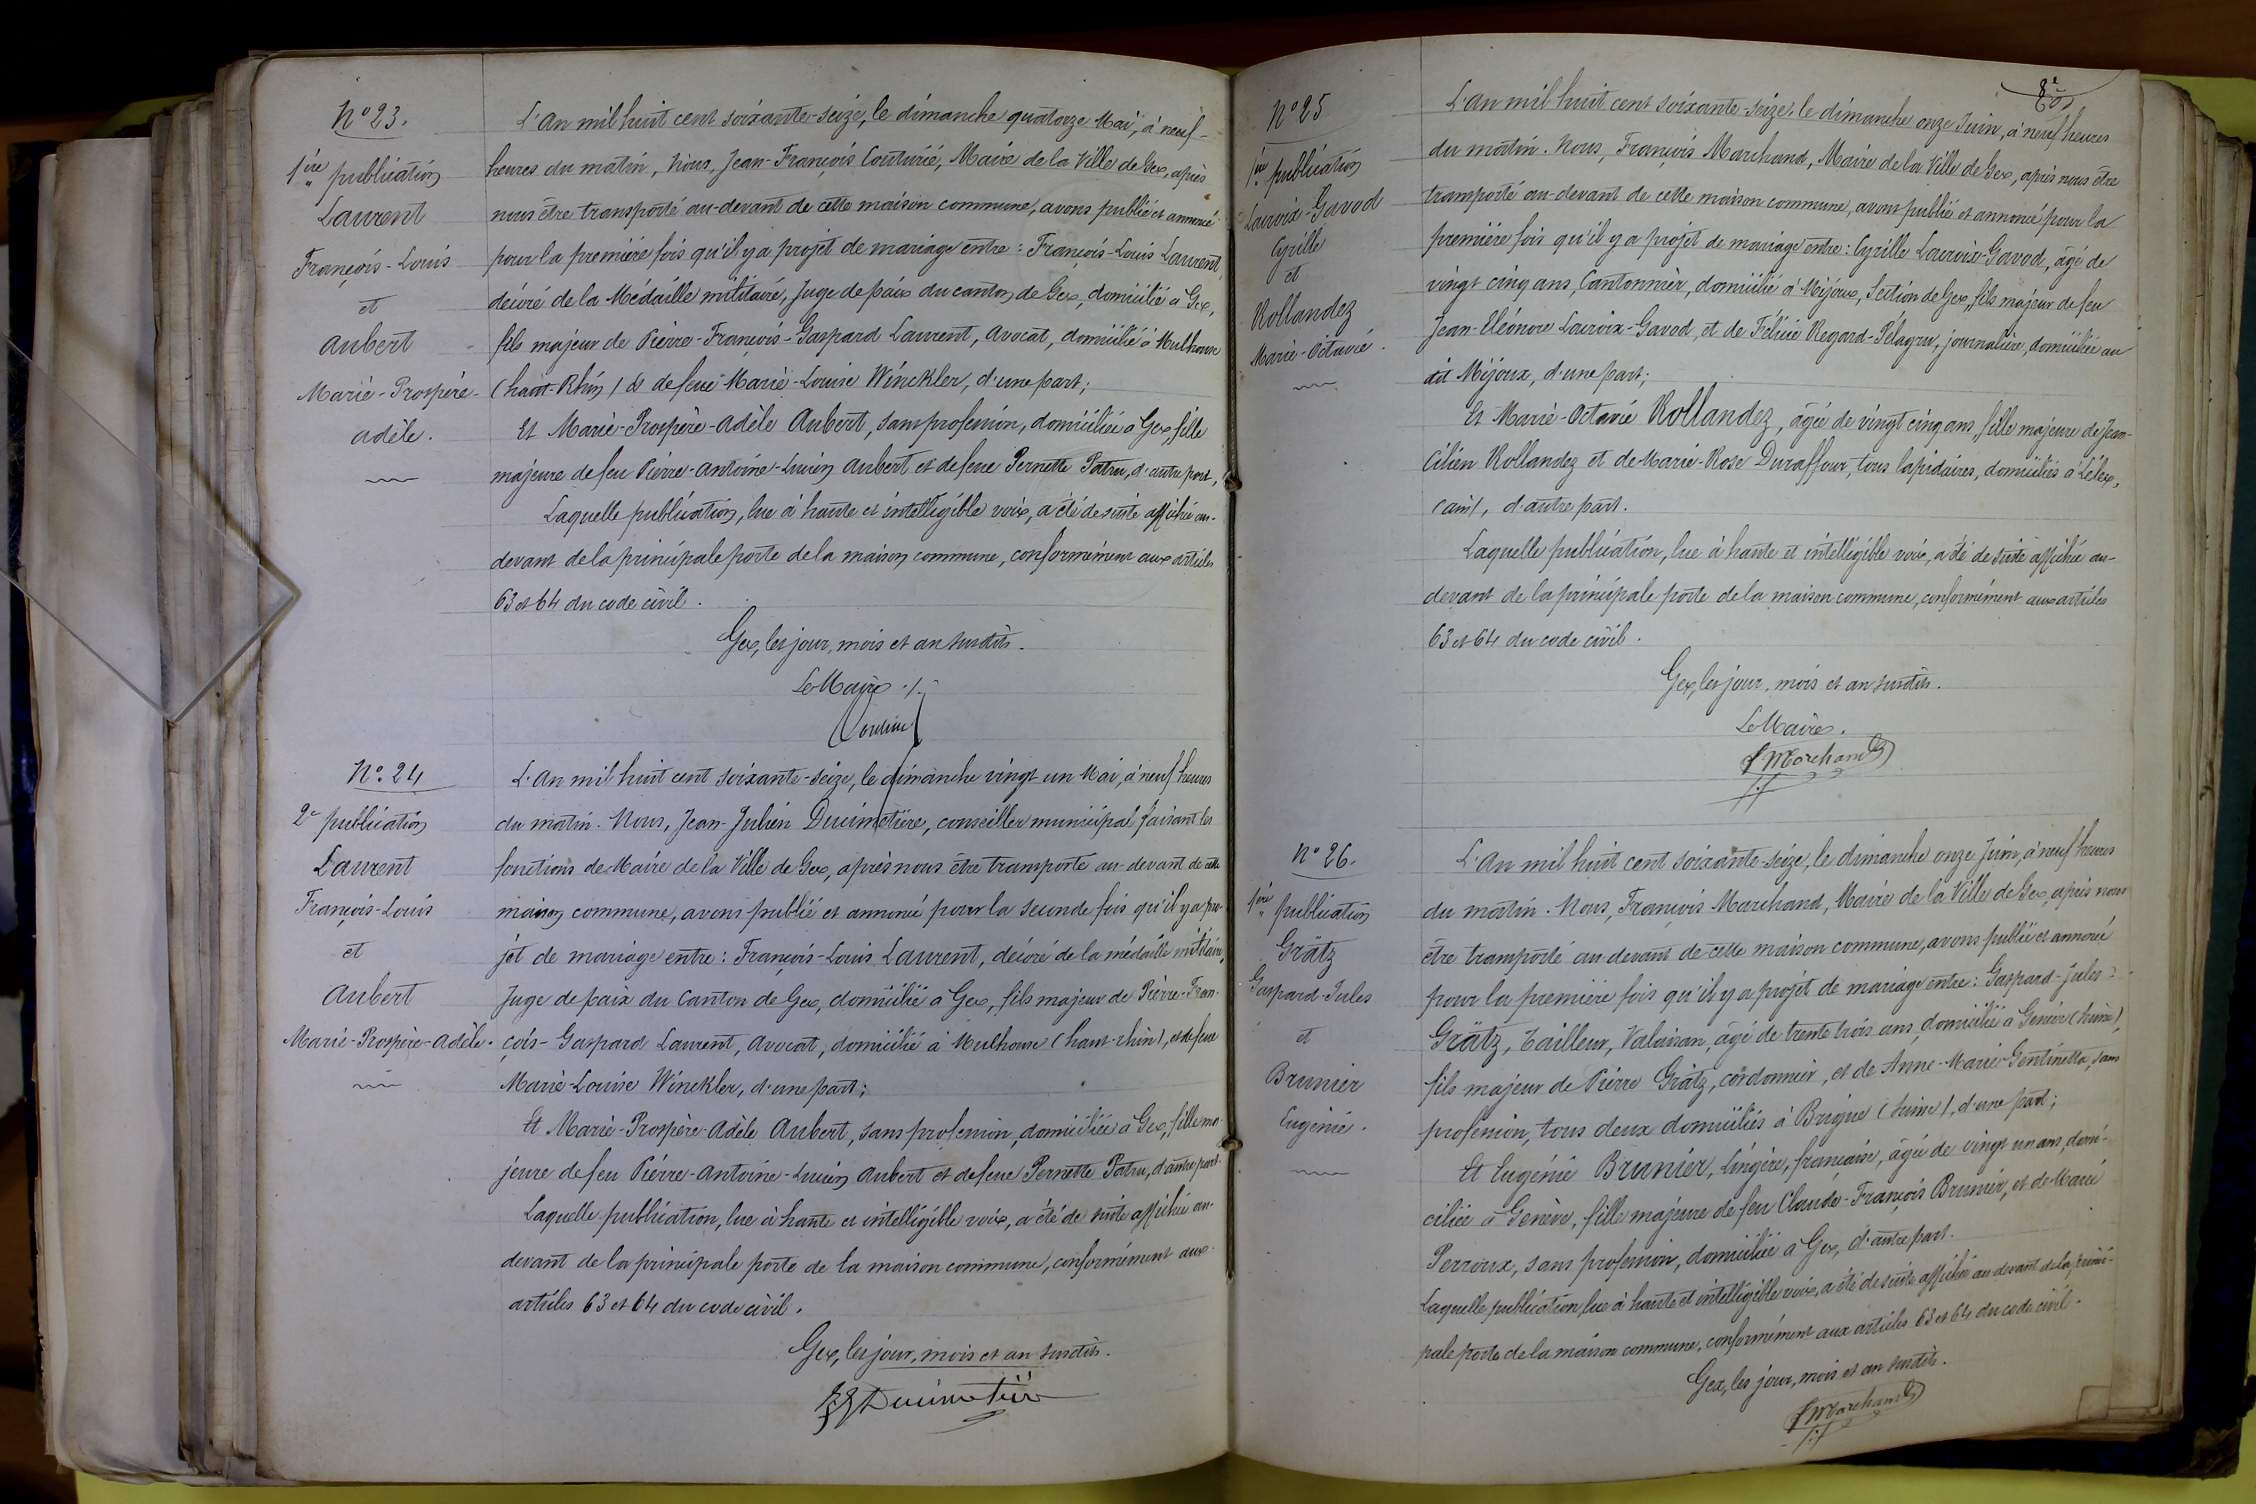 N° 23.
1ère publication
Laurent
François-Louis
et
Aubert
Marie-Prospère-
Adèle.
L'An mil huit cent soixante-seize, le dimanche quatorze Mai, à neuf-
heures du matin, Nous, Jean-François Couturié, Maire de la Ville de Gex, après
nous être transporté au-devant de cette maison commune, avons publié et annoncé
pour la première fois qu'il y a projet de mariage entre : François-Louis Laurent,
décoré de la Médaille militaire, Juge de paix du canton de Gex, domicilié à Gex,
fils majeur de Pierre-François-Gaspard Laurent, Avocat, domicilié à Mulhouse
(haut-Rhin) & de feue Marie-Louise Winckler, d'une part;
Et Marie-Prospère-Adèle Aubert, sans profession, domiciliée à Gex, fille
majeure de feu Pierre-Antoine-Lucien Aubert et de feue Pernette Patru, d'autre part,
Laquelle publication, lue à haute et intelligible voix, a été de suite affichée au-
devant de la principale porte de la maison commune, conformément aux articles
63 et 64 du code civil.
Gex, les jour, mois et an susdits.
Le Maire ./.
N° 24
2e publication
Laurent
François-Louis
et
Aubert
Marie-Prospère-Adèle.
L'An mil huit cent soixante-seize, le dimanche vingt un Mai, à neuf heures
du matin. Nous, Jean-Julien Ducimetière, conseiller municipal faisant les
fonctions de Maire de la Ville de Gex, après nous être transporté au-devant de cette
maison commune, avons publié et annoncé pour la seconde fois qu'il y a pro-
jet de mariage entre : François-Louis Laurent, décoré de la médaille militaire,
Juge de paix du Canton de Gex, domicilié à Gex, fils majeur de Pierre-Fran-
çois-Gaspard Laurent, Avocat, domicilié à Mulhouse (haut-rhin), et de feue
Marie-Louise Winckler, d'une part;
Et Marie-Prospère-Adèle Aubert, sans profession, domiciliée à Gex, fille ma-
jeure de feu Pierre-Antoine-Lucien Aubert et de feue Pernette Patru, d'autre part.
Laquelle publication, lue à haute et intelligible voix, a été de suite affichée au-
devant de la principale porte de la maison commune, conformément aux
articles 63 et 64 du code civil.
Gex, les jour, mois et an susdits.
JJ Ducimetière
N° 25
1ère publication
Lacroix-Gavod
Cyrille
et
Rollandez
Marie-Octavie.
L'An mil huit cent soixante-seize, le dimanche onze Juin, à neuf heures
du matin. Nous, François Marchand, Maire de la Ville de Gex, après nous être
transporté au-devant de cette maison commune, avons publié et annoncé pour la
première fois qu'il y a projet de mariage entre : Cyrille Lacroix-Gavod, âgé de
vingt cinq ans, Cantonnier, domicilié à Mijoux, Section de Gex, fils majeur de feu
Jean-Eléonore Lacroix-Gavod, et de Félicie Regard-Pélagru, journalière, domiciliée au
dit Mijoux, d'une part;
Et Marie-Octavie Rollandez, âgée de vingt cinq ans, fille majeure de Jean-
Cilien Rollandez et de Marie-Rose Duraffour, tous lapidaires, domiciliés à Lélex,
(ain), d'autre part.
Laquelle publication, lue à haute et intelligible voix, a été de suite affichée au-
devant de la principale porte de la maison commune, conformément aux articles
63 et 64 du code civil.
Gex, les jour, mois et an susdits.
Le Maire.
f Marchand
N° 26.
1ère publication
Grätz
Gaspard-Jules
et
Brunier
Eugénie.
L'An mil huit cent soixante-seize, le dimanche onze Juin, à neuf heures
du matin. Nous, François Marchand, Maire de la Ville de Gex, après nous
être transporté au-devant de cette maison commune, avons publié et annoncé
pour la première fois qu'il y a projet de mariage entre : Gaspard-Jules
Grätz, Tailleur, Valaisan, âgé de trente trois ans, domicilié à Genève (Suisse),
fils majeur de Pierre Grätz, cordonnier, et de Anne-Marie Gentinetta, sans
profession, tous deux domiciliés à Brigue (Suisse), d'une part;
Et Eugénie Brunier, Lingère, française, âgée de vingt un ans, domi-
ciliée à Genève, fille majeure de feu Claude-François Brunier, et de Marie
Perroux, sans profession, domiciliée à Gex, d'autre part.
Laquelle publication, lue à haute et intelligible voix, a été de suite affichée au devant de la princi-
pale porte de la maison commune, conformément aux articles 63 et 64 du code civil.
Gex, les jour, mois et an susdits.
f Marchand